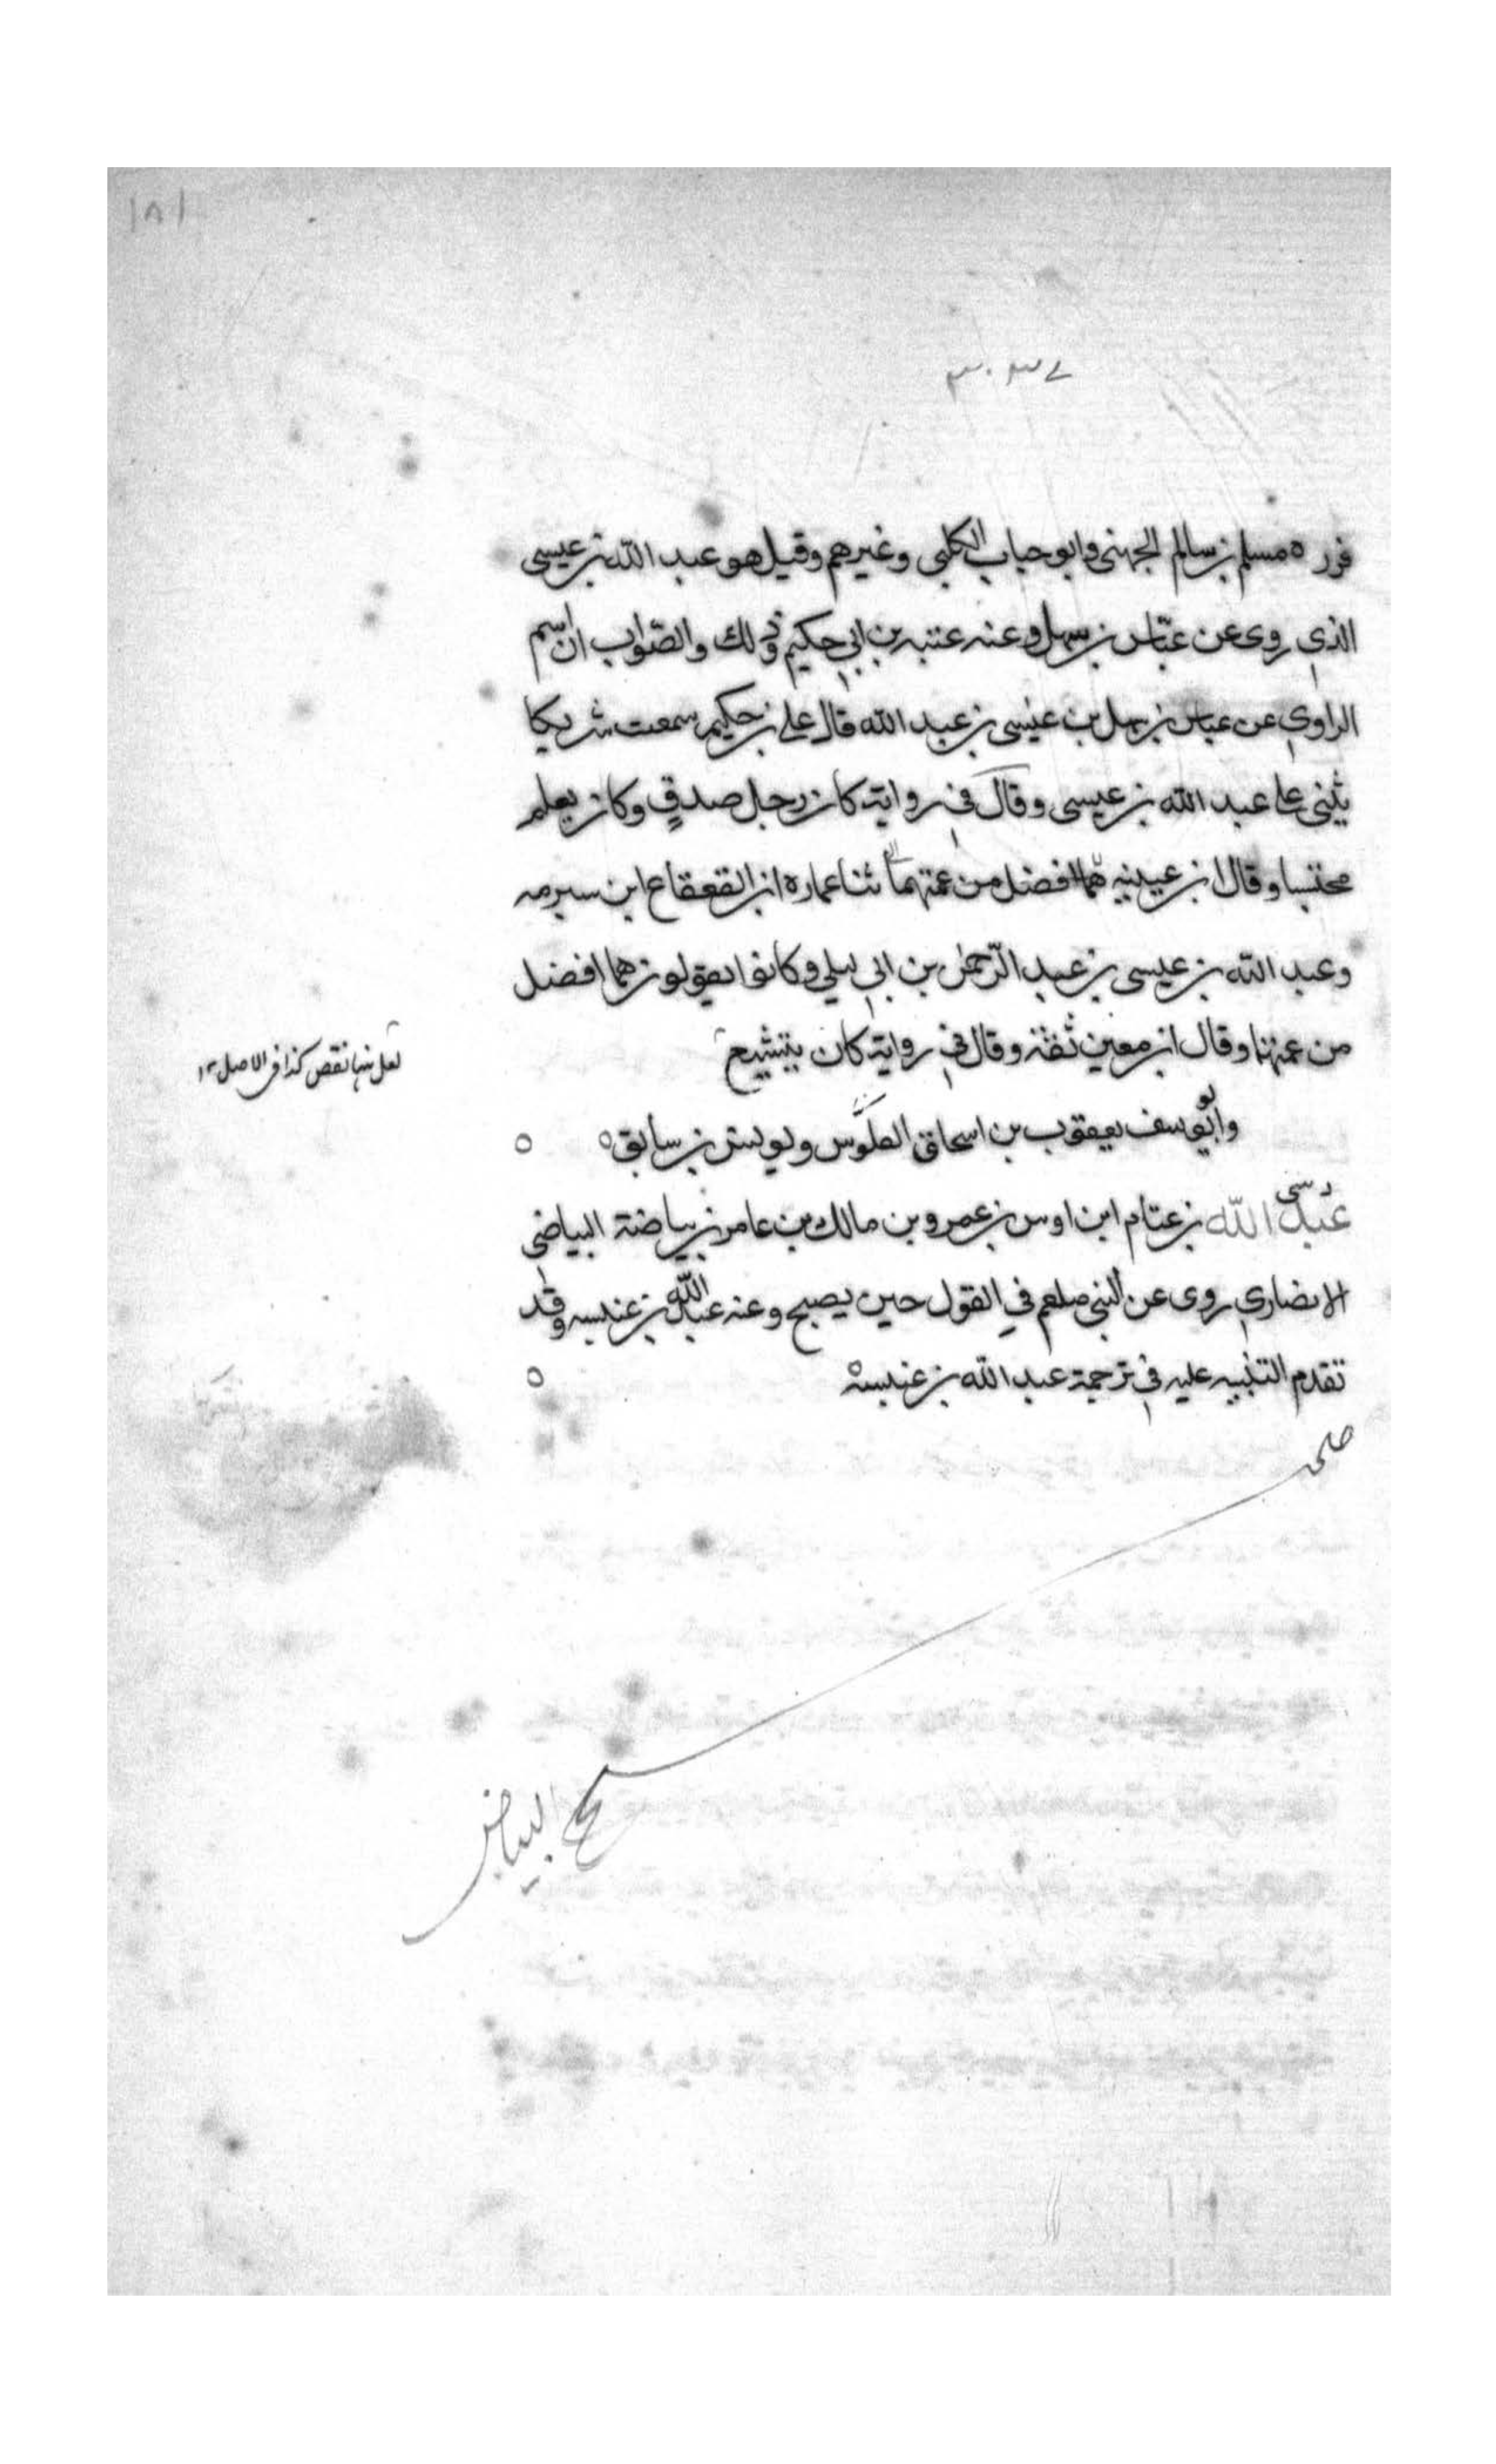 ١٨١
فروه مسلم بن سالم الجهنى وابو حباب الكلبى وغيرهم وقيل هو عبد الله بن عيسى
الذى روى عن عباس بن سهل وعنه عتبه بن ابى حكيم وذلك والصواب ان اسم
الراوى عن عباس بن سهل بن عيسى بن عبد الله قال على بن حكيم سمعت شريكا
يثنى على عبد الله بن عيسى وقال فى رواية كان رجل صدق وكان يعلم
محتسبا وقال ابن عيينه هما افضل من عمتهما ثنا عماره ابن القعقاع ابن سبرمه
وعبد الله بن عيسى بن عبد الرحمن بن ابى ليلى وكانوا يقولون هما افضل
من عمتهما وقال ابن معين ثقة وقال فى رواية كان يتشيع
لعل ههنا نقص كذا فى الاصل ١٢
وابو يوسف يعقوب بن اسحاق ويونس بن سابق ه
د سى
عبد الله بن عتام ابن اوس بن عمرو بن مالك بن عامر بن بياضة البياضى
الانصارى روى عن النبى صلعم فى القول حين يصبح وعنه عبد الله بن عنبسه وقد
تقدم التنبيه عليه فى ترجمة عبد الله بن عنبسة ه
صح البياض